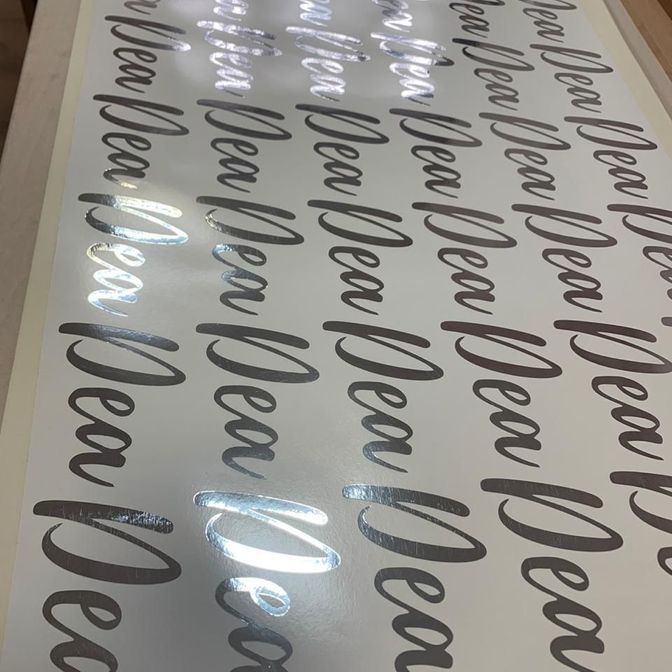 Dea Dea
Dea Dea Dea Dea Dea Dea
Dea Dea Dea Dea Dea Dea
Dea Dea Dea Dea Dea Dea
Dea Dea Dea Dea Dea
Dea Dea Dea Dea